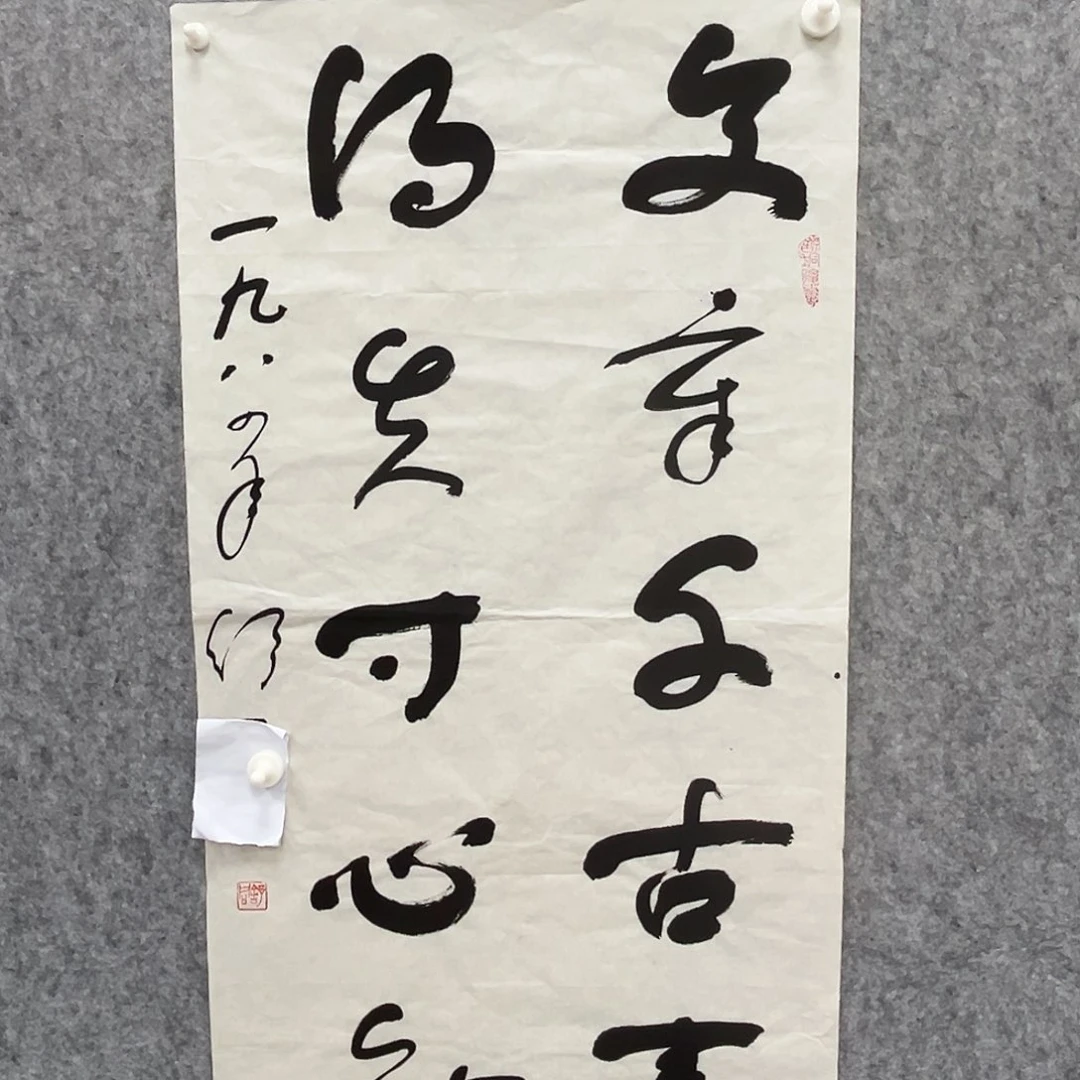 文章千古事
得失寸心知
一九八四年